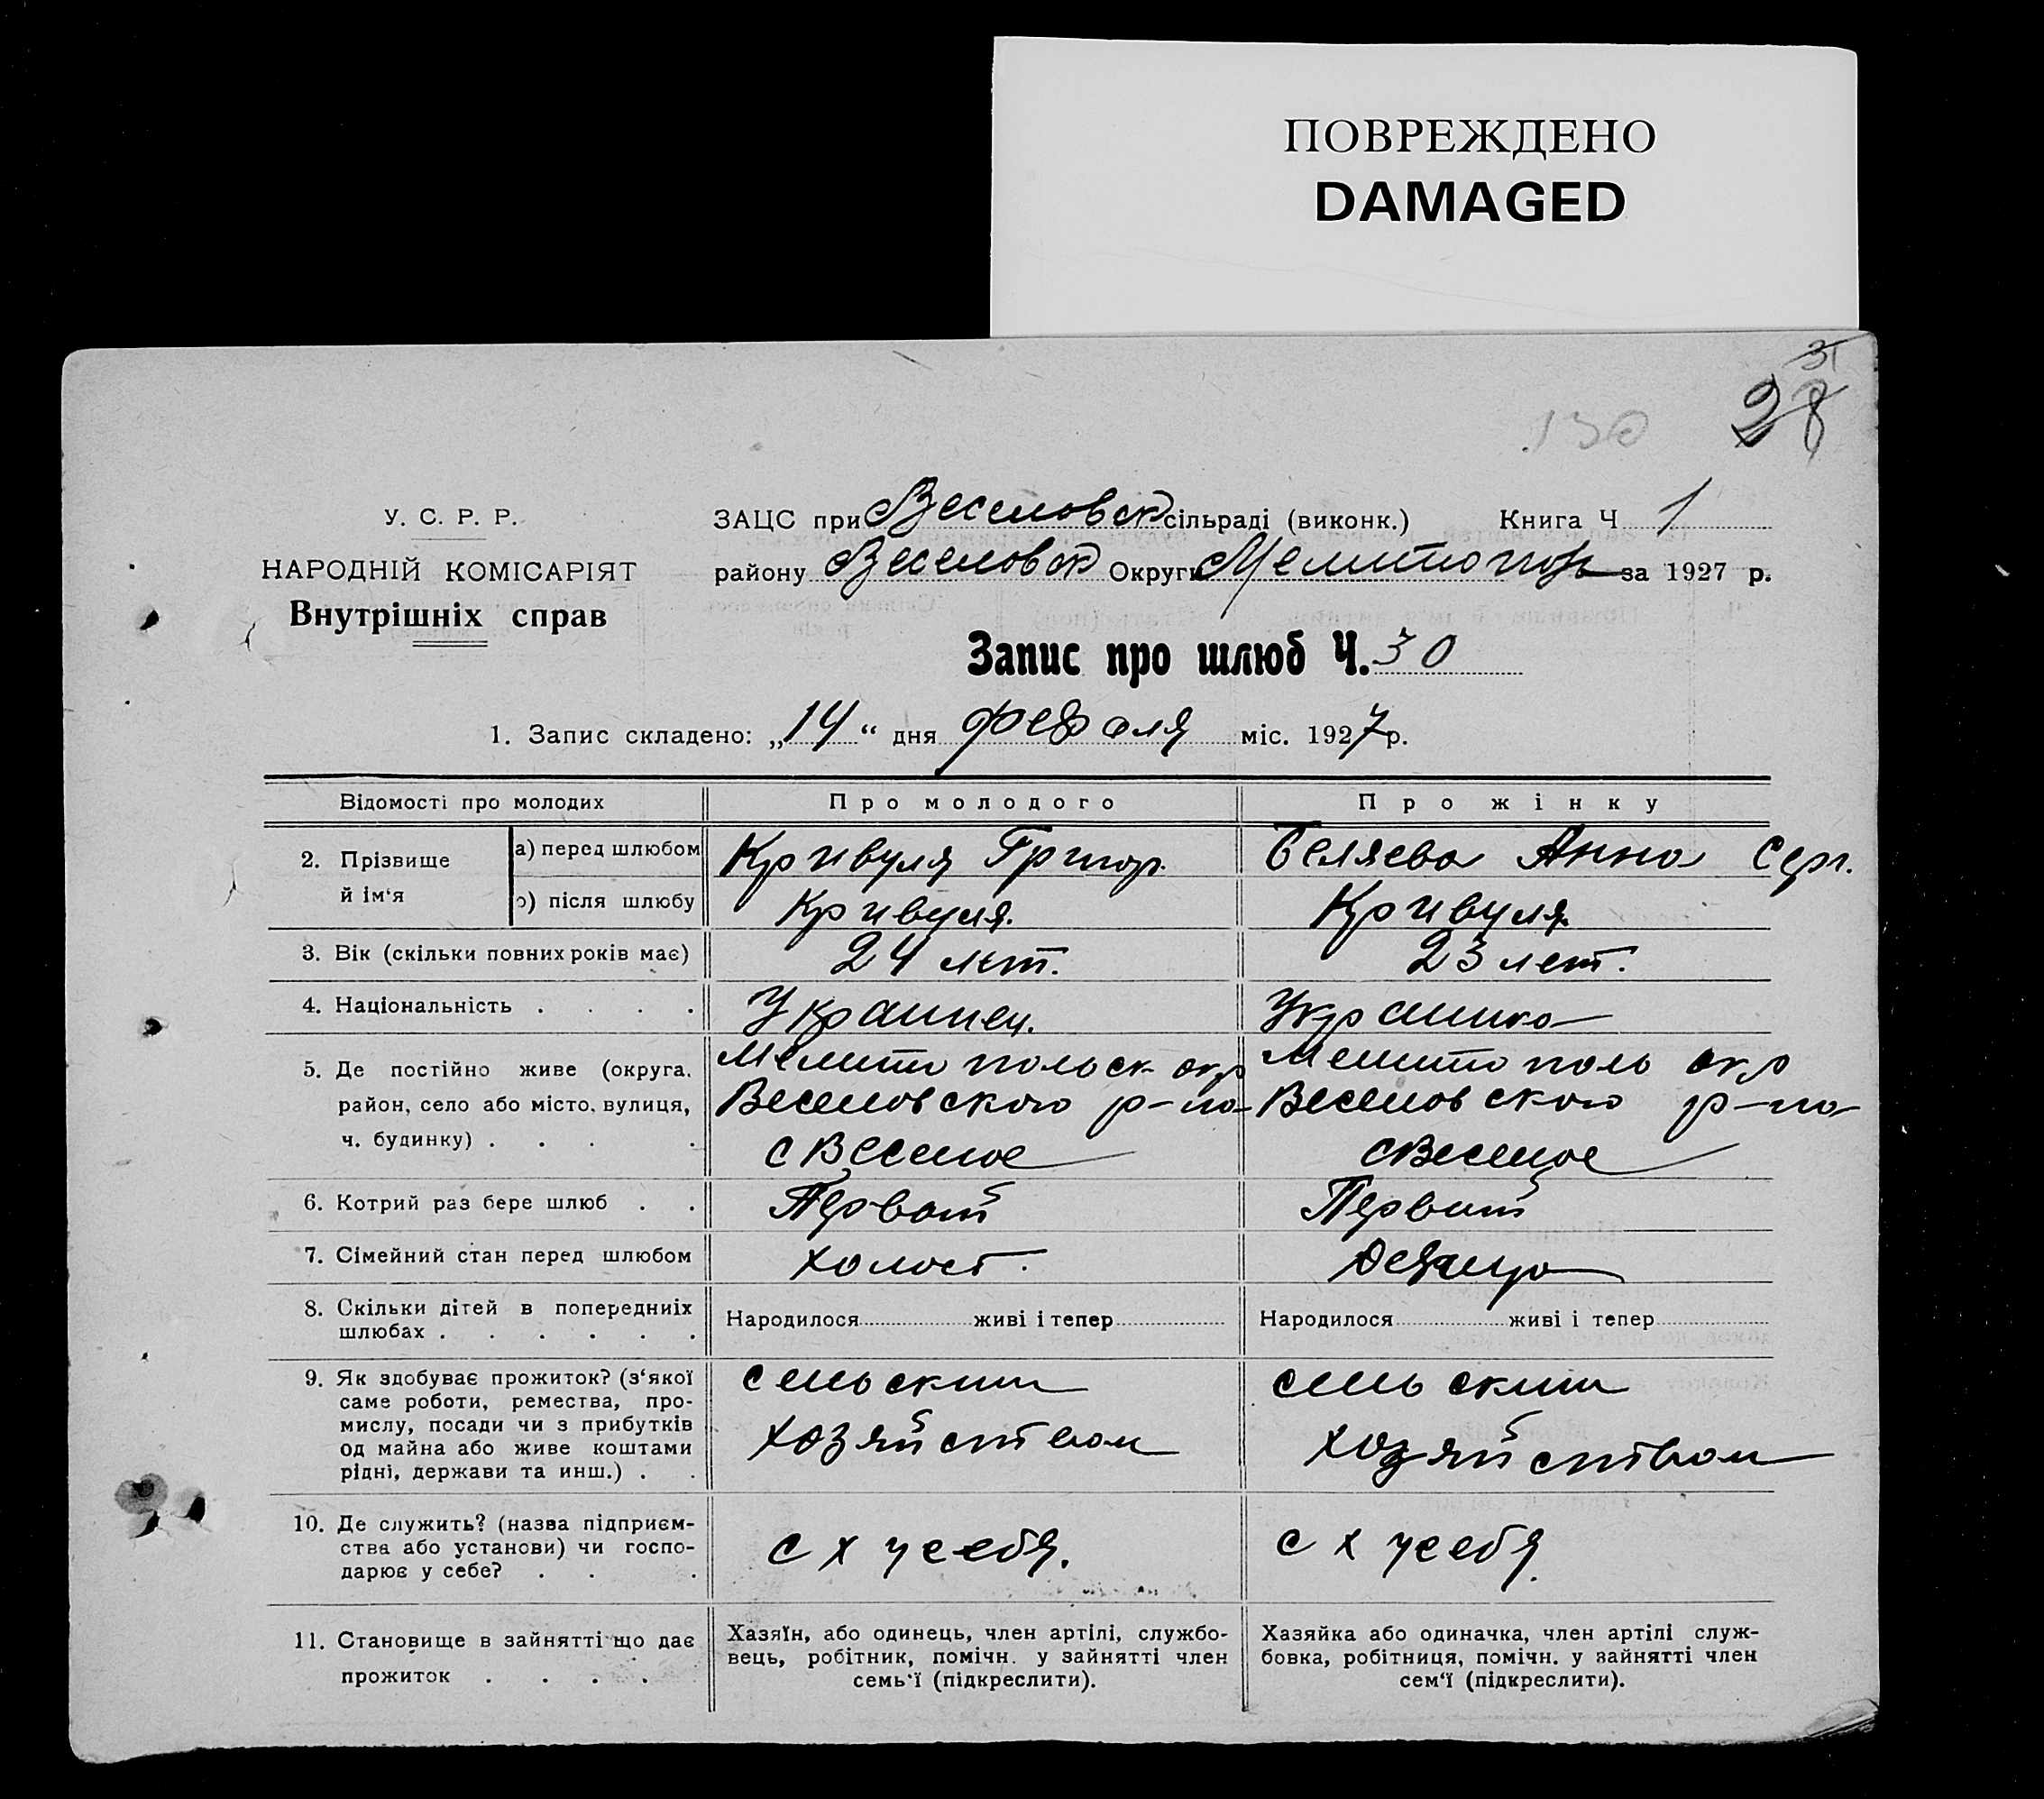 ПОВРЕЖДЕНО
DAMAGED
31
28
130
У. С. Р. Р.
НАРОДНІЙ КОМІСАРІЯТ
Внутрішніх справ
ЗАЦС при Веселовск сільраді (виконк.) Книга Ч 1
району Веселовск Округи Мелитоп за 1927 р.
Запис про шлюб Ч. 30
1. Запис складено: „14“ дня феваля міс. 1927 р.
Відомості про молодих Про молодого Про жінку
2. Прізвище й ім‘я
а) перед шлюбом Кривуля Григор. Беляева Анна Серг.
б) після шлюбу Кривуля. Кривуля.
3. Вік (скільки повних років має) 24 лет. 23 лет.
4. Національність . . . . Украинец. Украинка
5. Де постійно живе (округа, Мелитопольск окр Мелитополь окр
район, село або місто, вулиця, Веселовского р-на Веселовского р-на
ч. будинку) . . . . с Веселое с Веселое
6. Котрий раз бере шлюб . . Первый Первый
7. Сімейний стан перед шлюбом холост. Девица
8. Скільки дітей в попередниіх
шлюбах . . . . . . Народилося живі і тепер Народилося живі і тепер
9. Як здобуває прожиток? (з‘якої сельским сельским
саме роботи, ремества, про-
мислу, посади чи з прибутків хозяйством хозяйством
од майна або живе коштами
рідні, держави та инш.) . .
10. Де служить? (назва підприєм-
ства або установи) чи госпо- с х у себя. с х у себя.
дарює у себе? . . .
11. Становище в зайнятті що дає Хазяїн, або одинець, член артілі, службо- Хазяйка або одиначка, член артілі служ-
вець, робітник, помічн. у зайнятті член бовка, робітниця, помічн. у зайнятті член
прожиток . . . . семь‘ї (підкреслити). сем‘ї (підкреслити).